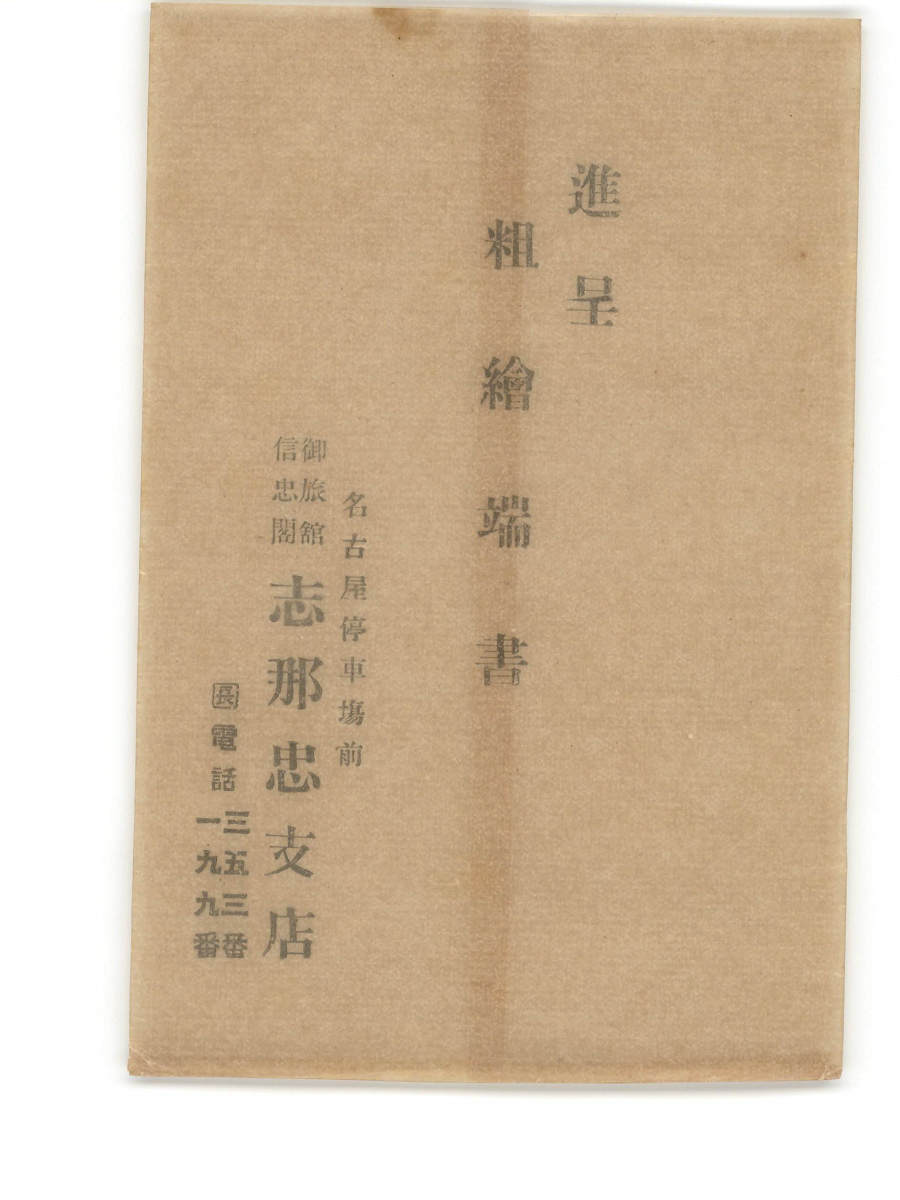 進呈
粗繪端書
名古屋停車塲前
御旅舘
信忠閣
志那忠支店
長電話
三五三番
一九九番